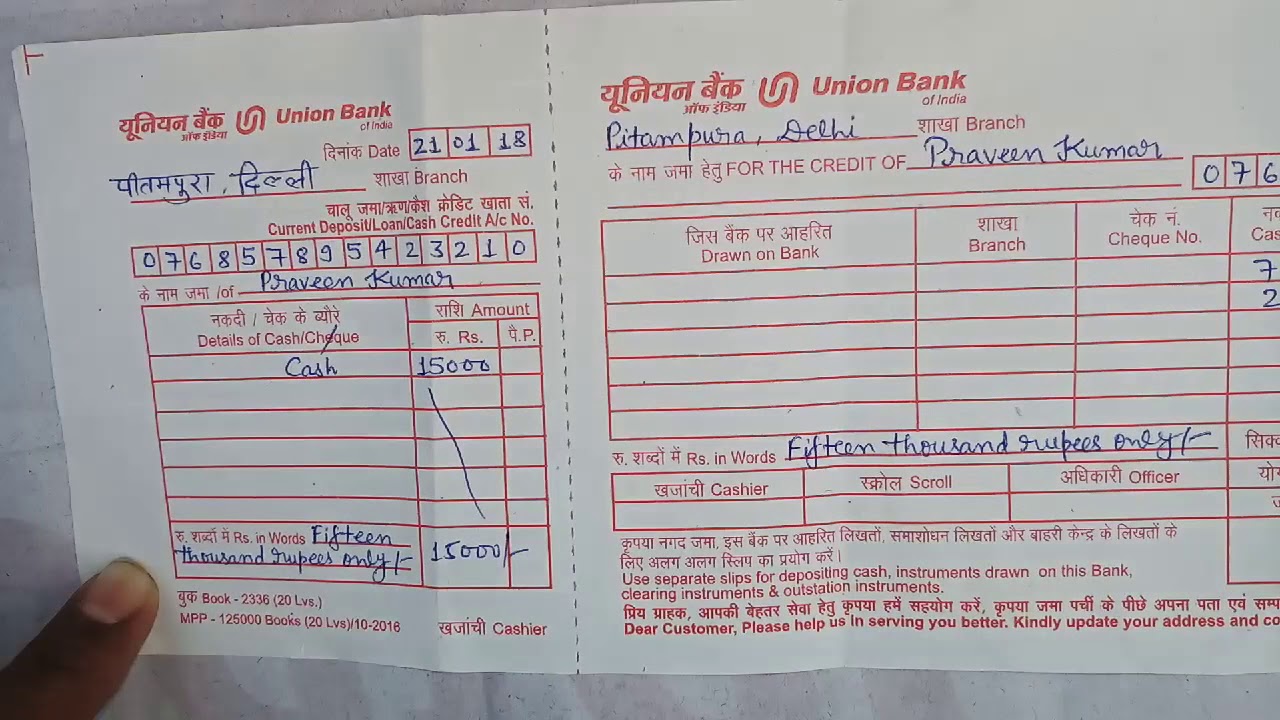 यूनियन बैंक Union Bank
ऑफ इंडिया of India
दिनांक Date 21 01 18
पीतमपुरा, दिल्ली शाखा Branch
चालू जमा/ऋण/कैश क्रेडिट खाता सं.
Current Deposit/Loan/Cash Credit A/c No.
0 7 6 8 5 7 8 9 5 4 2 3 2 1 0
के नाम जमा /of Praveen Kumar
नकदी / चेक के ब्यौरे राशि Amount
Details of Cash/Cheque रु. Rs. पै.P.
Cash 15000
रु. शब्दों में Rs. in Words Fifteen
thousand rupees only/- 15000/-
बुक Book - 2336 (20 Lvs.)
MPP - 125000 Books (20 Lvs)/10-2016 खजांची Cashier
यूनियन बैंक Union Bank
ऑफ इंडिया of India
Pitampura, Delhi शाखा Branch
के नाम जमा हेतु FOR THE CREDIT OF Praveen Kumar
0 7 6
जिस बैंक पर आहरित शाखा चेक नं.
Drawn on Bank Branch Cheque No. Cas
7
2
रु. शब्दों में Rs. in Words Fifteen thousand rupees only/-
खजांची Cashier स्क्रोल Scroll अधिकारी Officer
कृपया नगद जमा, इस बैंक पर आहरित लिखतों, समाशोधन लिखतों और बाहरी केन्द्र के लिखतों के
लिए अलग अलग स्लिप का प्रयोग करें।
Use separate slips for depositing cash, instruments drawn on this Bank,
clearing instruments & outstation instruments.
प्रिय ग्राहक, आपकी बेहतर सेवा हेतु कृपया हमें सहयोग करें, कृपया जमा पर्ची के पीछे अपना पता एवं सम्प
Dear Customer, Please help us in serving you better. Kindly update your address and co